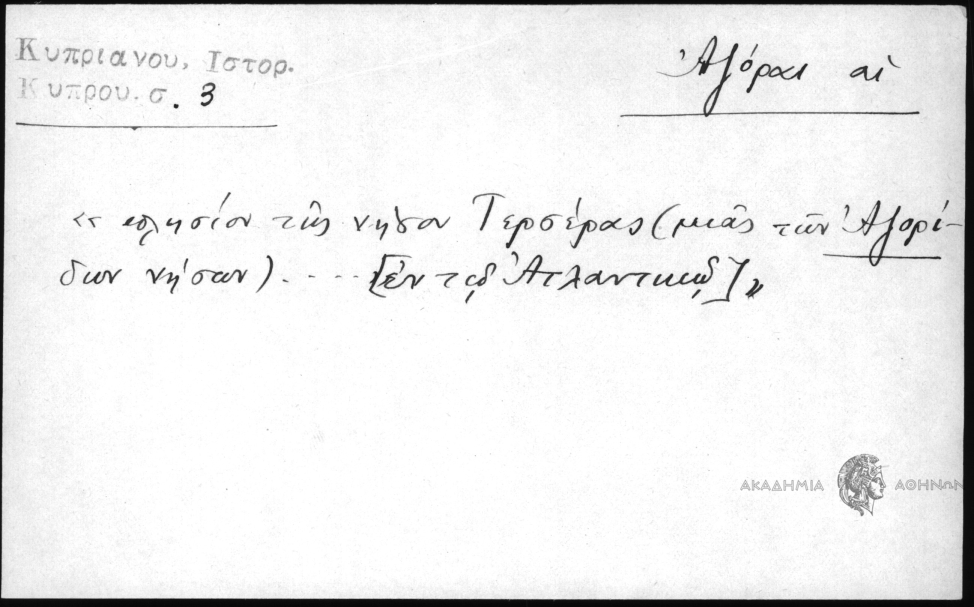 Κυπριανου, Ιστορ.
Κυπρου. σ. 3
Ἀζόραι αἱ
« πλησίον τῆς νήσου Τερσέρας (μιᾶς τῶν Ἀζορί-
δων νήσων). .... [ἐν τῷ Ἀτλαντικῷ] »
ΑΚΑΔΗΜΙΑ ΑΘΗΝΩΝ